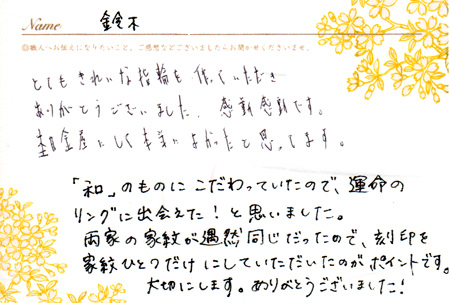 Name 鈴木
◎職人へお伝えになりたいこと、ご感想などございましたらお聞かせくださいませ。
とてもきれいな指輪を作っていただき
ありがとうございました。感動感動です。
杢目金屋にして本当によかったと思ってます。
「和」のものにこだわっていたので、運命の
リングに出会えた！と思いました。
両家の家紋が偶然同じだったので、刻印を
家紋ひとつだけにしていただいたのがポイントです。
大切にします。ありがとうございました！